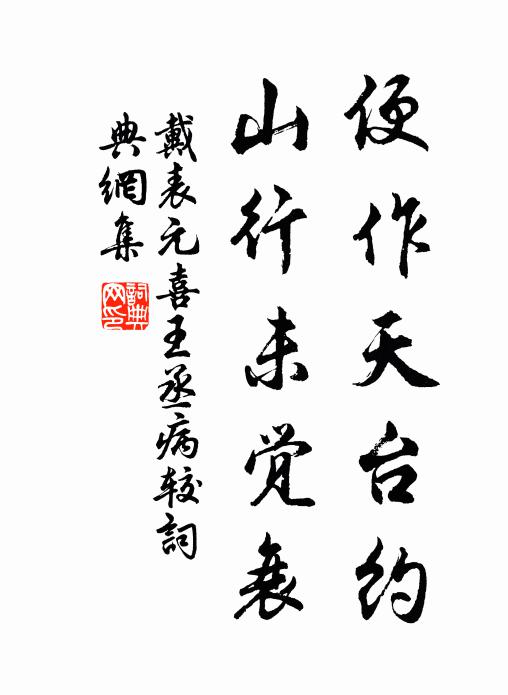 便作天台约
山行未觉衰
戴表元喜王丞病较詞
典網集
詞典网印